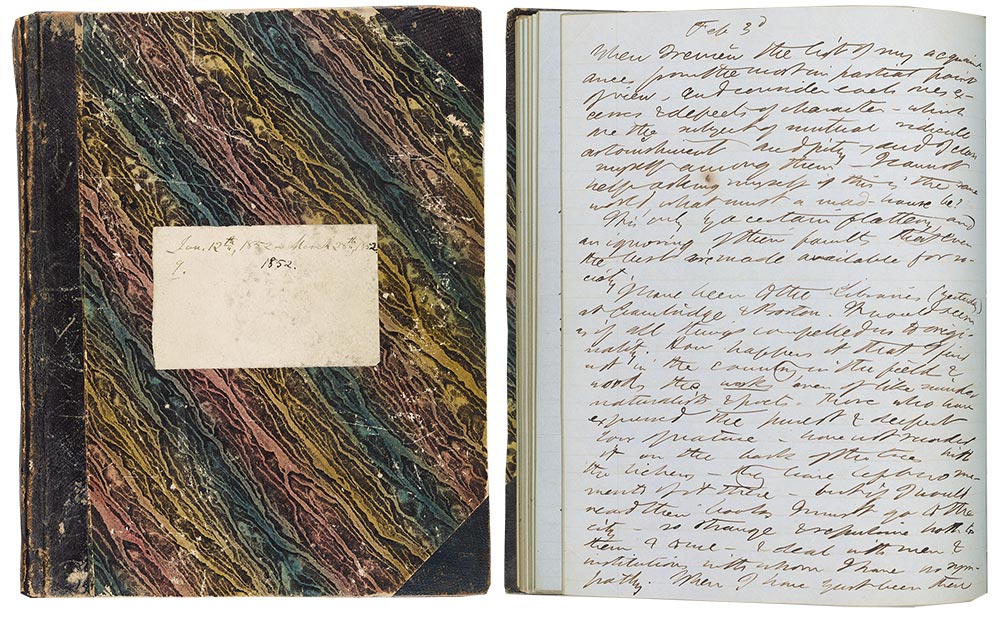 Jan. 12th, 1852 - March 28th, 1852
9.
1852.
Feb 3d
When I review the list of my acquaint
ances from the most impartial point
of view, and consider each one's ex-
cesses & defects of character - which
are the subject of mutual ridicule
astonishment and pity - and I class
myself among them - I cannot
help asking myself if this is the sane
world what must a mad-house be?
It is only by a certain flattery, and
an ignoring of their faults that even
the best are made available for so-
ciety
I have been to the Libraries (yesterday)
at Cambridge & Boston. It would seem
as if all things compelled us to origi-
nality. How happens it that I find
not in the country, in the field &
woods the works even of like minded
naturalists & poets. Those who have
expressed the purest & deepest
love of nature - have not recorded
it on the bark of the trees with
the lichens - they have left no me-
mento of it there - but if I would
read their books I must go to the
city - so strange & repulsive both to
them & to me - & deal with men &
institutions with whom I have no sym-
pathy. When I have just been there